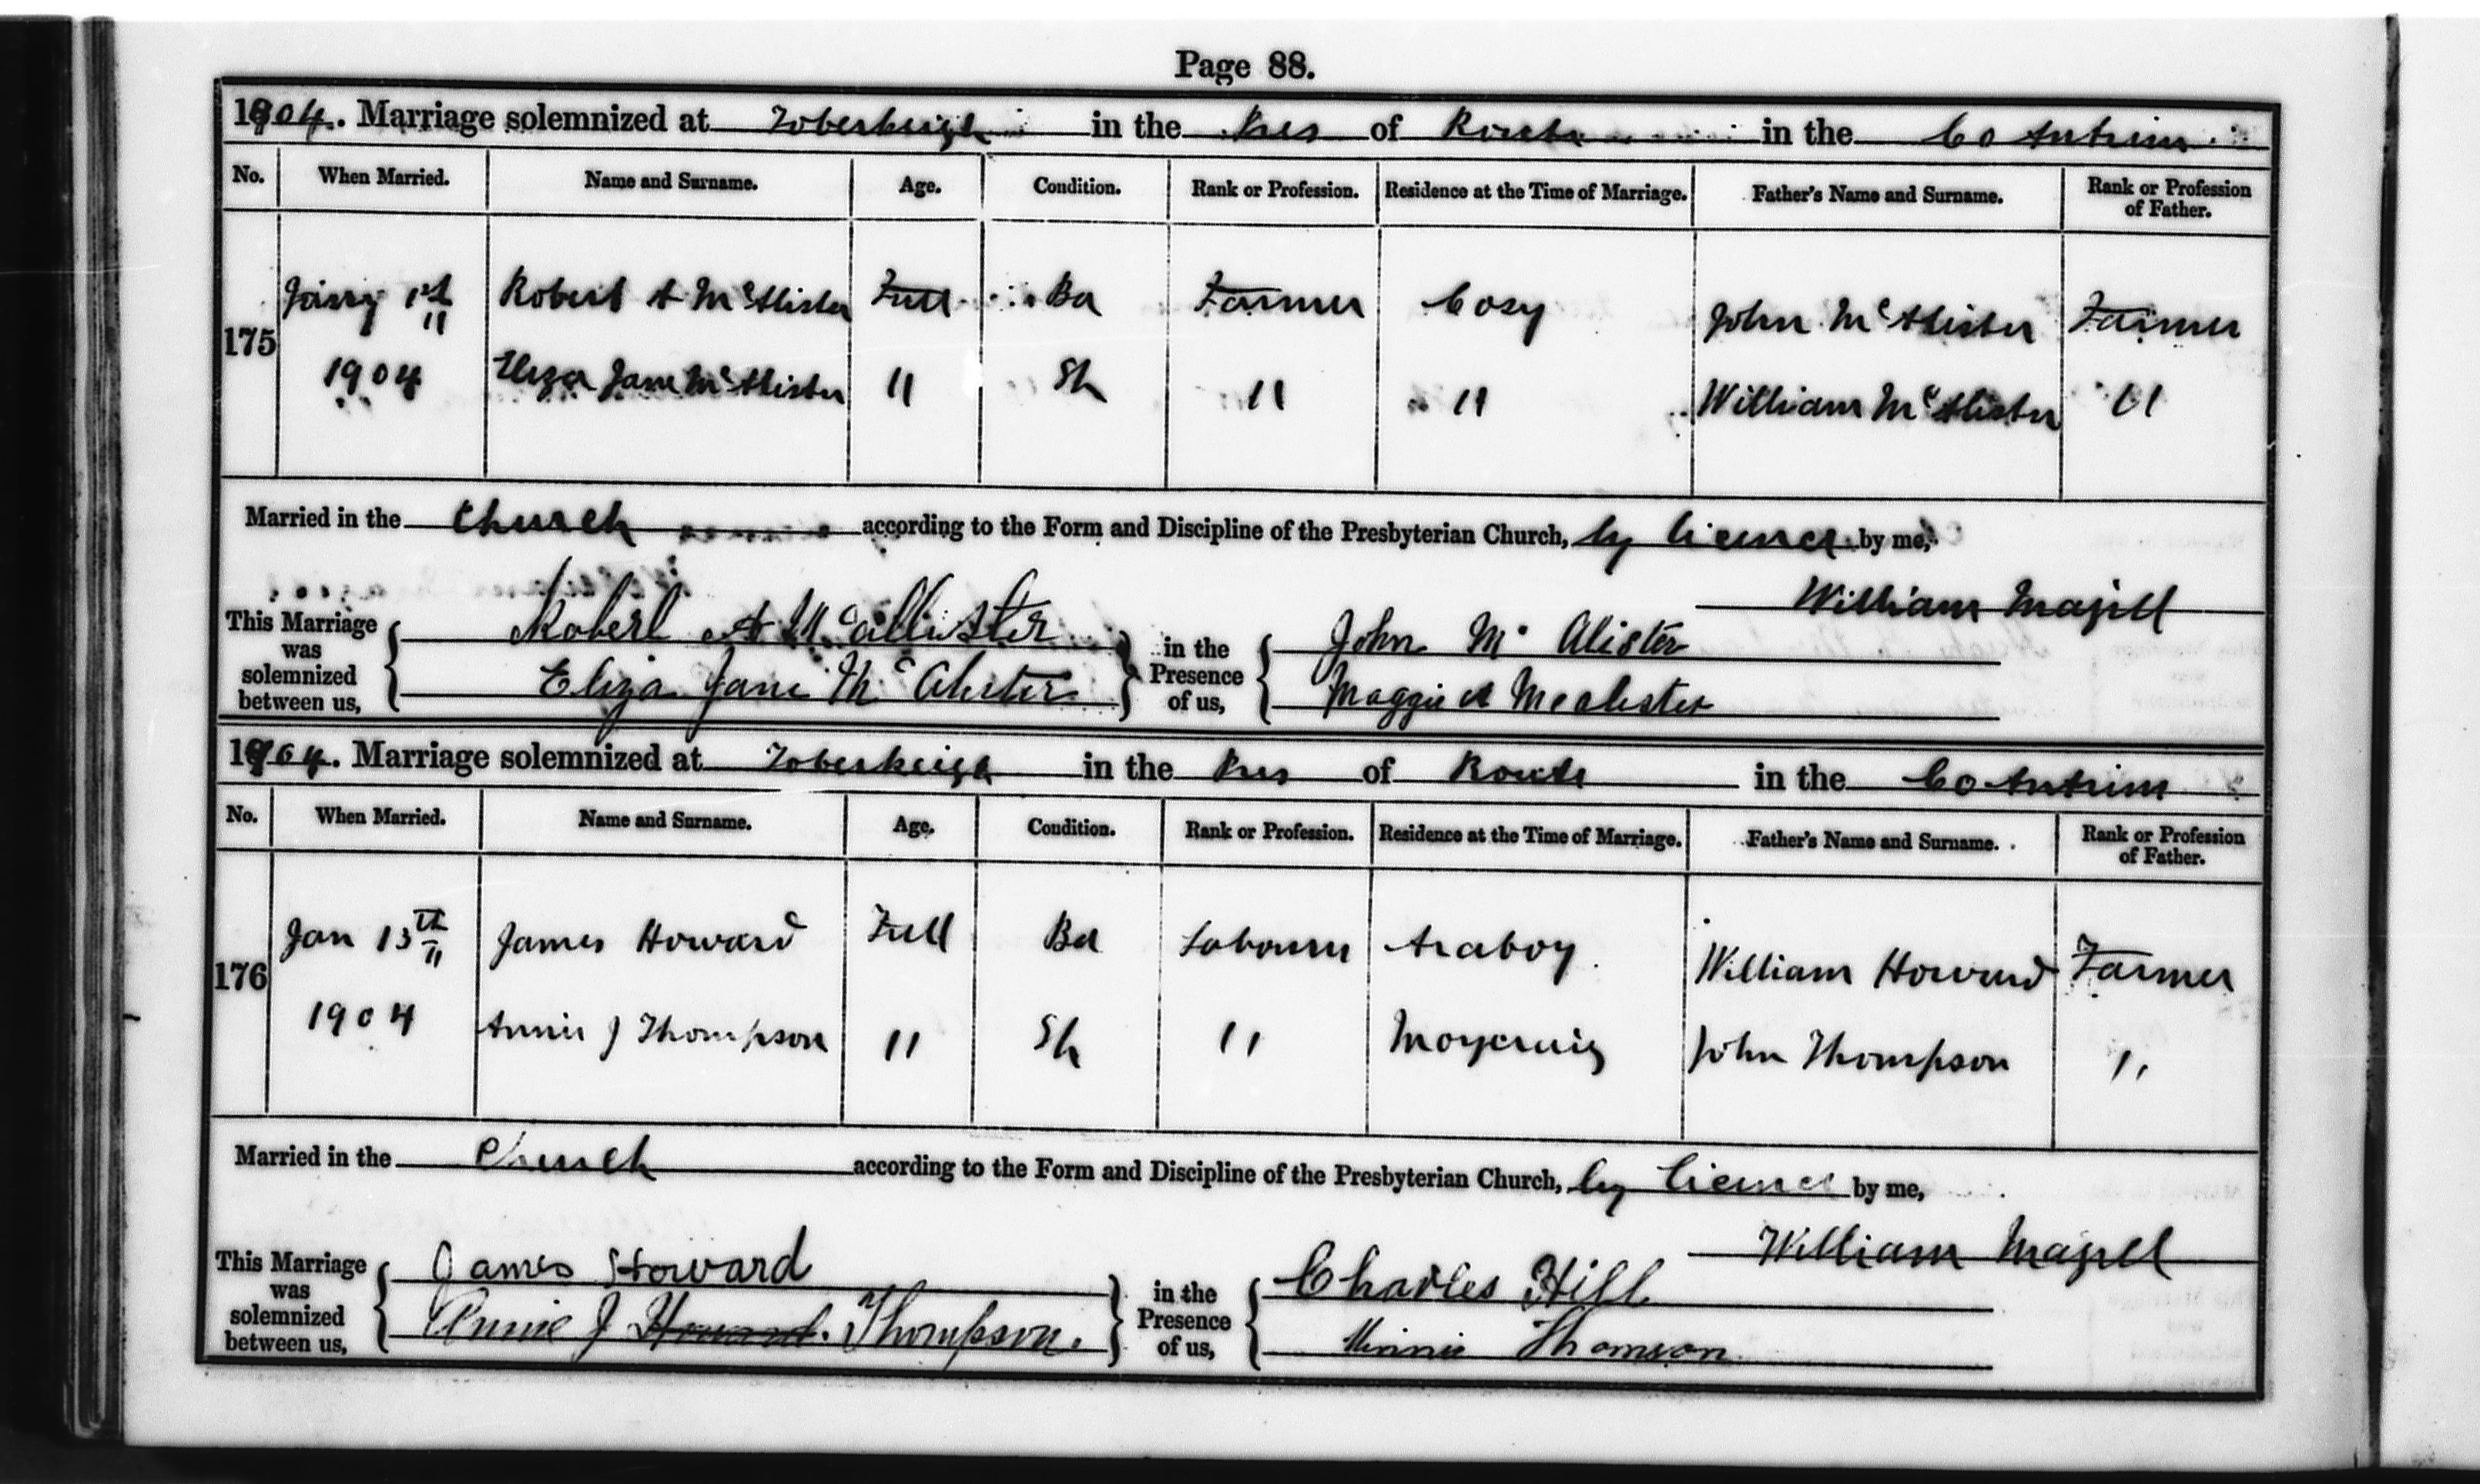 Page 88.
1904. Marriage solemnized at Toberkeigh in the Pres of Route in the Co Antrim
No. When Married. Name and Surname. Age. Condition. Rank or Profession. Residence at the Time of Marriage. Father's Name and Surname. Rank or Profession of Father.
175 Jany 1st Robert A McAlister Full Ba Farmer Cosy John McAlister Farmer
1904 Eliza Jane McAlister " Sp " " William McAlister "
Married in the Church according to the Form and Discipline of the Presbyterian Church, by licence by me,
William Magill
This Marriage was solemnized between us, Robert A McAllister in the Presence of us, John Mc Alister
Eliza Jane McAlister Maggie A McAlester
1904. Marriage solemnized at Toberkeigh in the Pres of Route in the Co Antrim
No. When Married. Name and Surname. Age. Condition. Rank or Profession. Residence at the Time of Marriage. Father's Name and Surname. Rank or Profession of Father.
176 Jan 13th James Howard Full Ba Labourer Araboy William Howard Farmer
1904 Annie J Thompson " Sp " Moycraig John Thompson "
Married in the Church according to the Form and Discipline of the Presbyterian Church, by licence by me,
William Magill
This Marriage was solemnized between us, James Howard in the Presence of us, Charles Hill
Annie J Howard. Thompson. Minnie Thomson